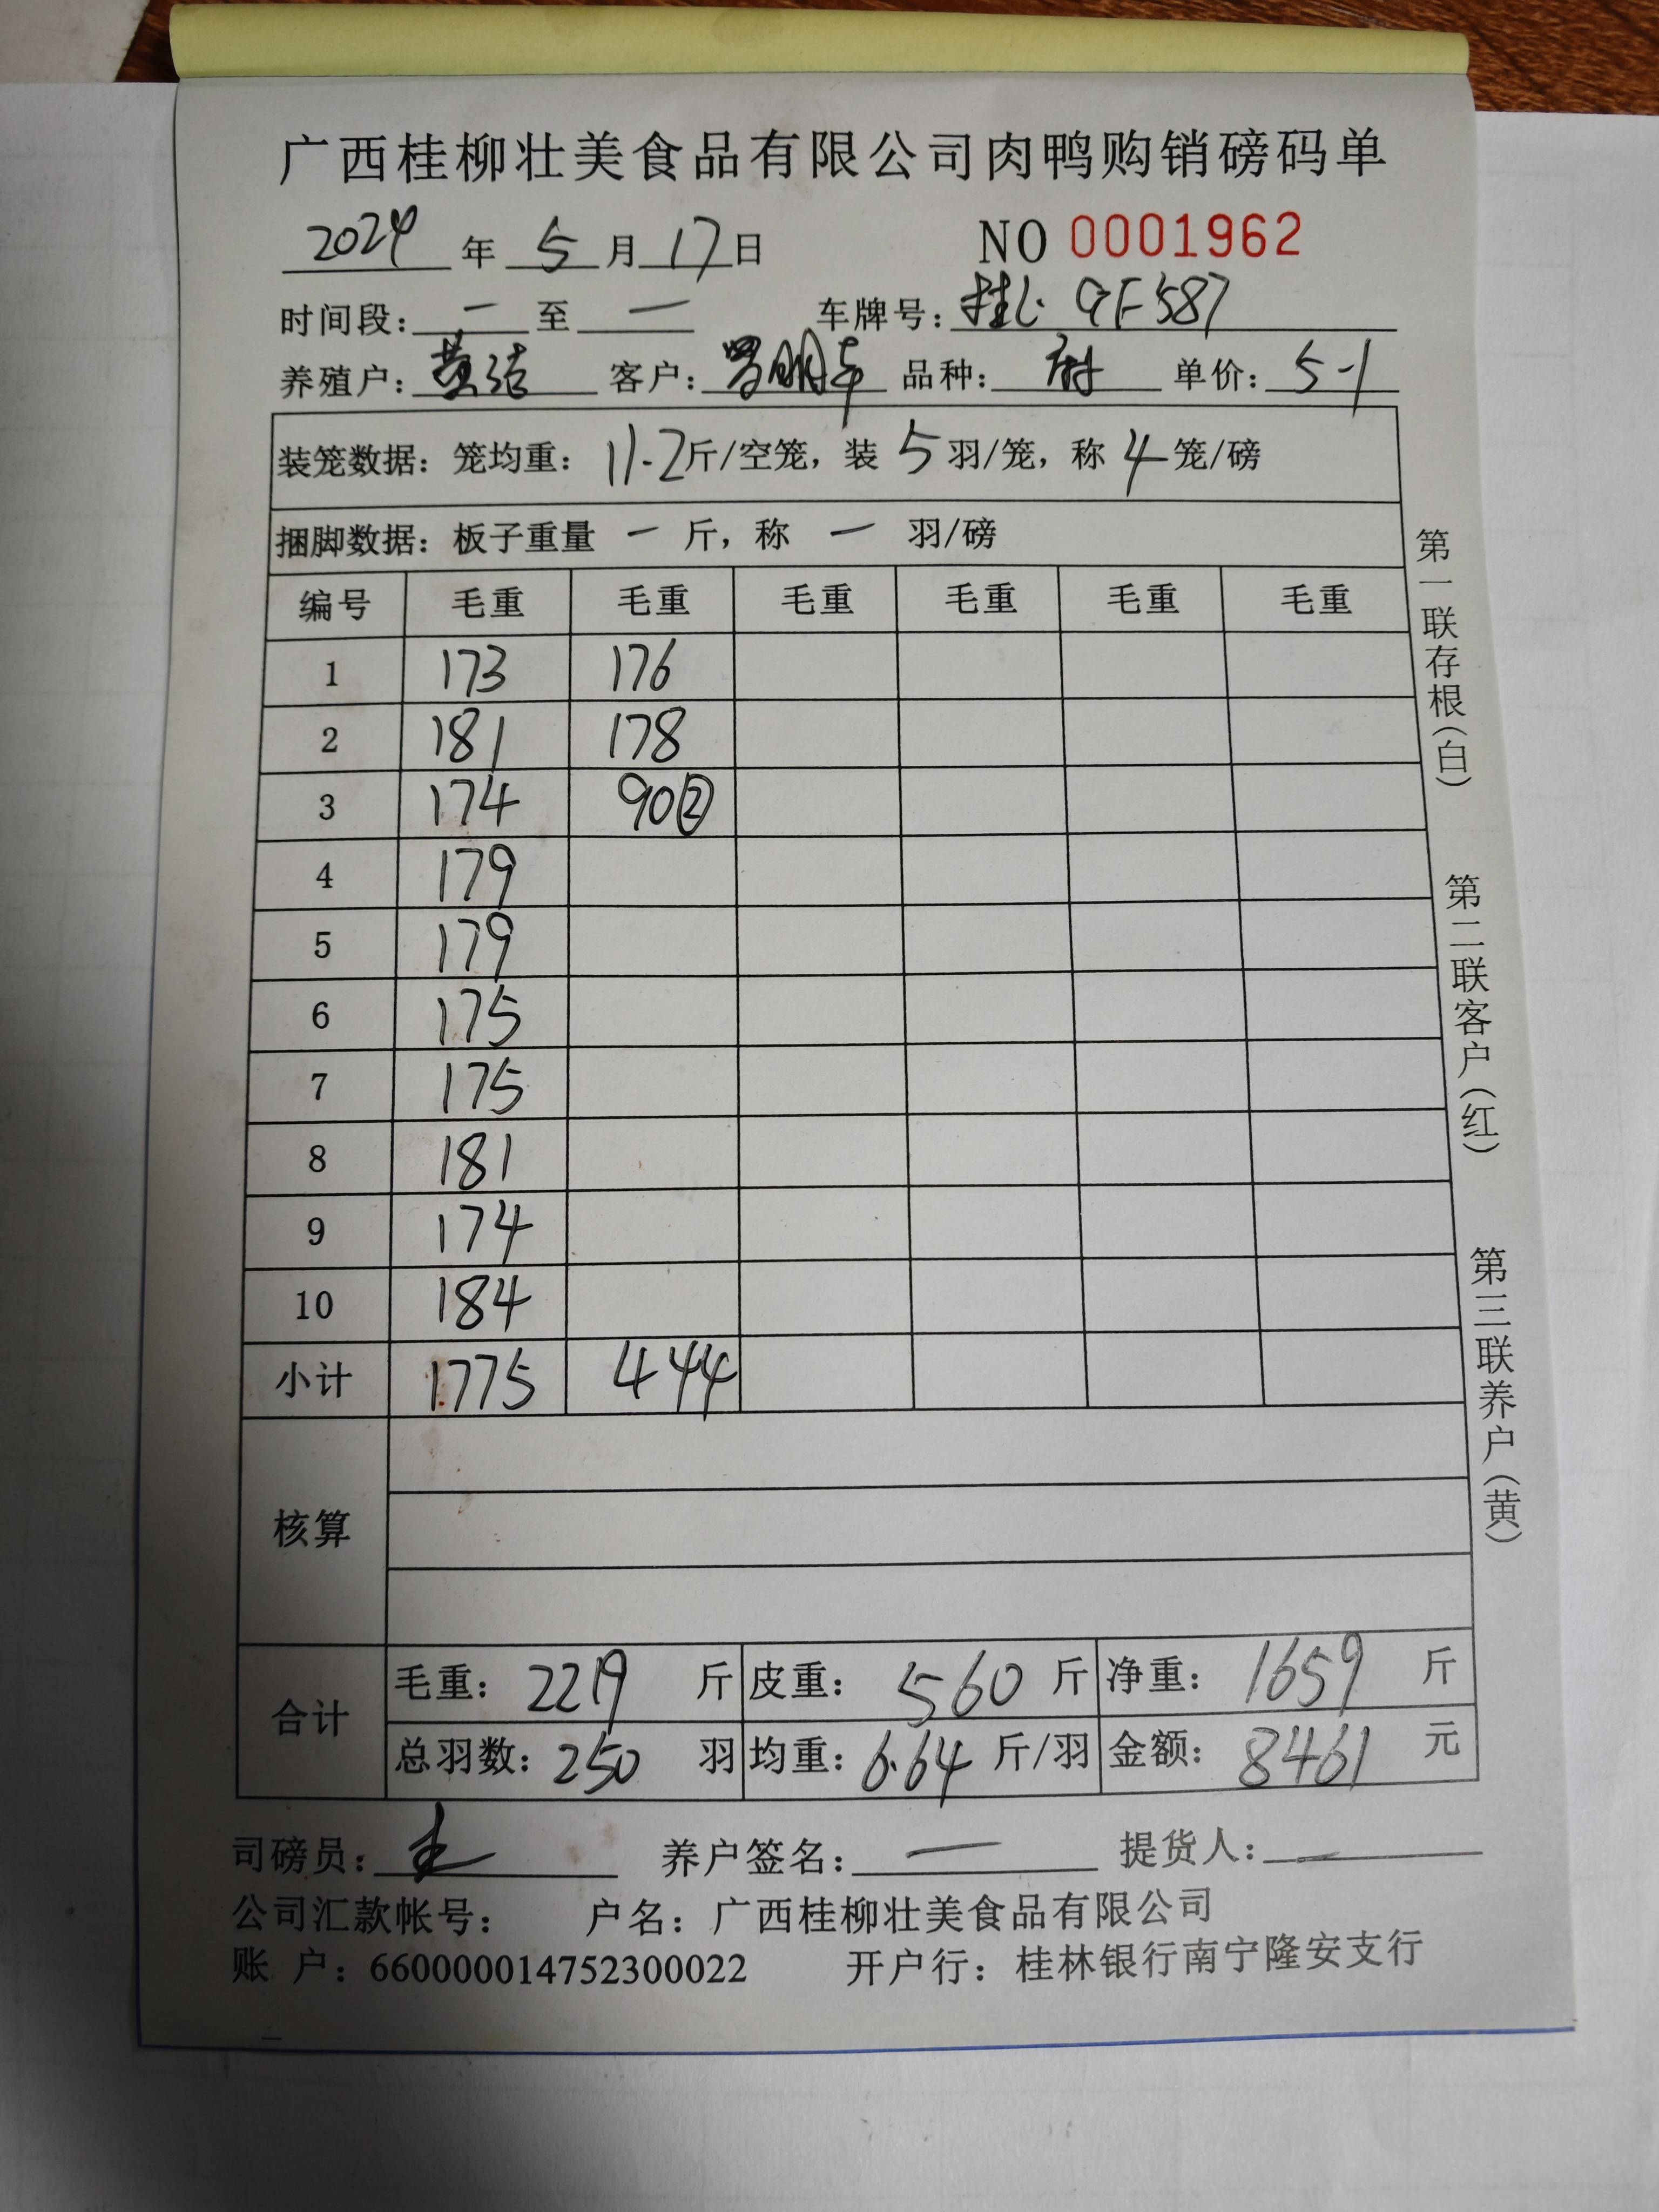 广西桂柳壮美食品有限公司肉鸭购销磅码单
2024 年 5 月 17 日 NO 0001962
时间段: 一 至 一 车牌号: 桂 F587
养殖户: 黄 客户: 明 品种: 单价: 5-1
装笼数据: 笼均重: 11.2斤/空笼, 装 5 羽/笼, 称 4 笼/磅
捆脚数据: 板子重量 一 斤, 称 一 羽/磅
编号 毛重 毛重 毛重 毛重 毛重 毛重
1 173 176
2 181 178
3 174 90②
4 179
5 179
6 175
7 175
8 181
9 174
10 184
小计 1775 444
核算
合计 毛重: 2219 斤 皮重: 560 斤 净重: 1659 斤
总羽数: 250 羽 均重: 6.64 斤/羽 金额: 8461 元
司磅员: 养户签名: 一 提货人: 一
公司汇款帐号: 户名: 广西桂柳壮美食品有限公司
账 户: 660000014752300022 开户行: 桂林银行南宁隆安支行
第一联存根(白) 第二联客户(红) 第三联养户(黄)